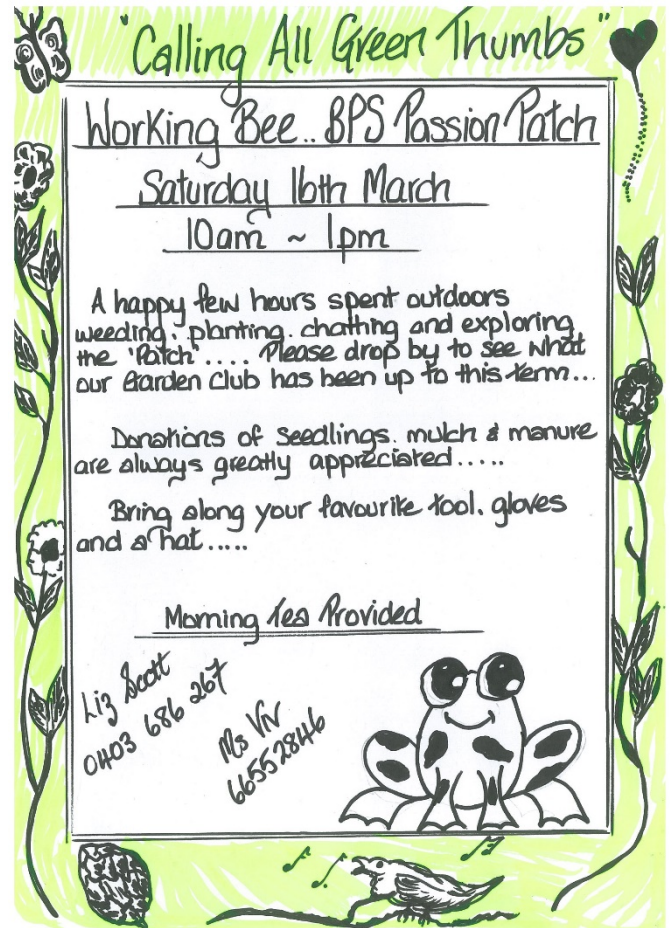 "Calling All Green Thumbs"
Working Bee.. BPS Passion Patch
Saturday 16th March
10am ~ 1pm
A happy few hours spent outdoors
weeding, planting, chatting and exploring
the 'Patch'.... Please drop by to see what
our Garden Club has been up to this term...
Donations of Seedlings, mulch & manure
are always greatly appreciated.....
Bring along your favourite tool, gloves
and a hat.....
Morning Tea Provided
Liz Scott
0403 686 267
Ms Viv
66552846